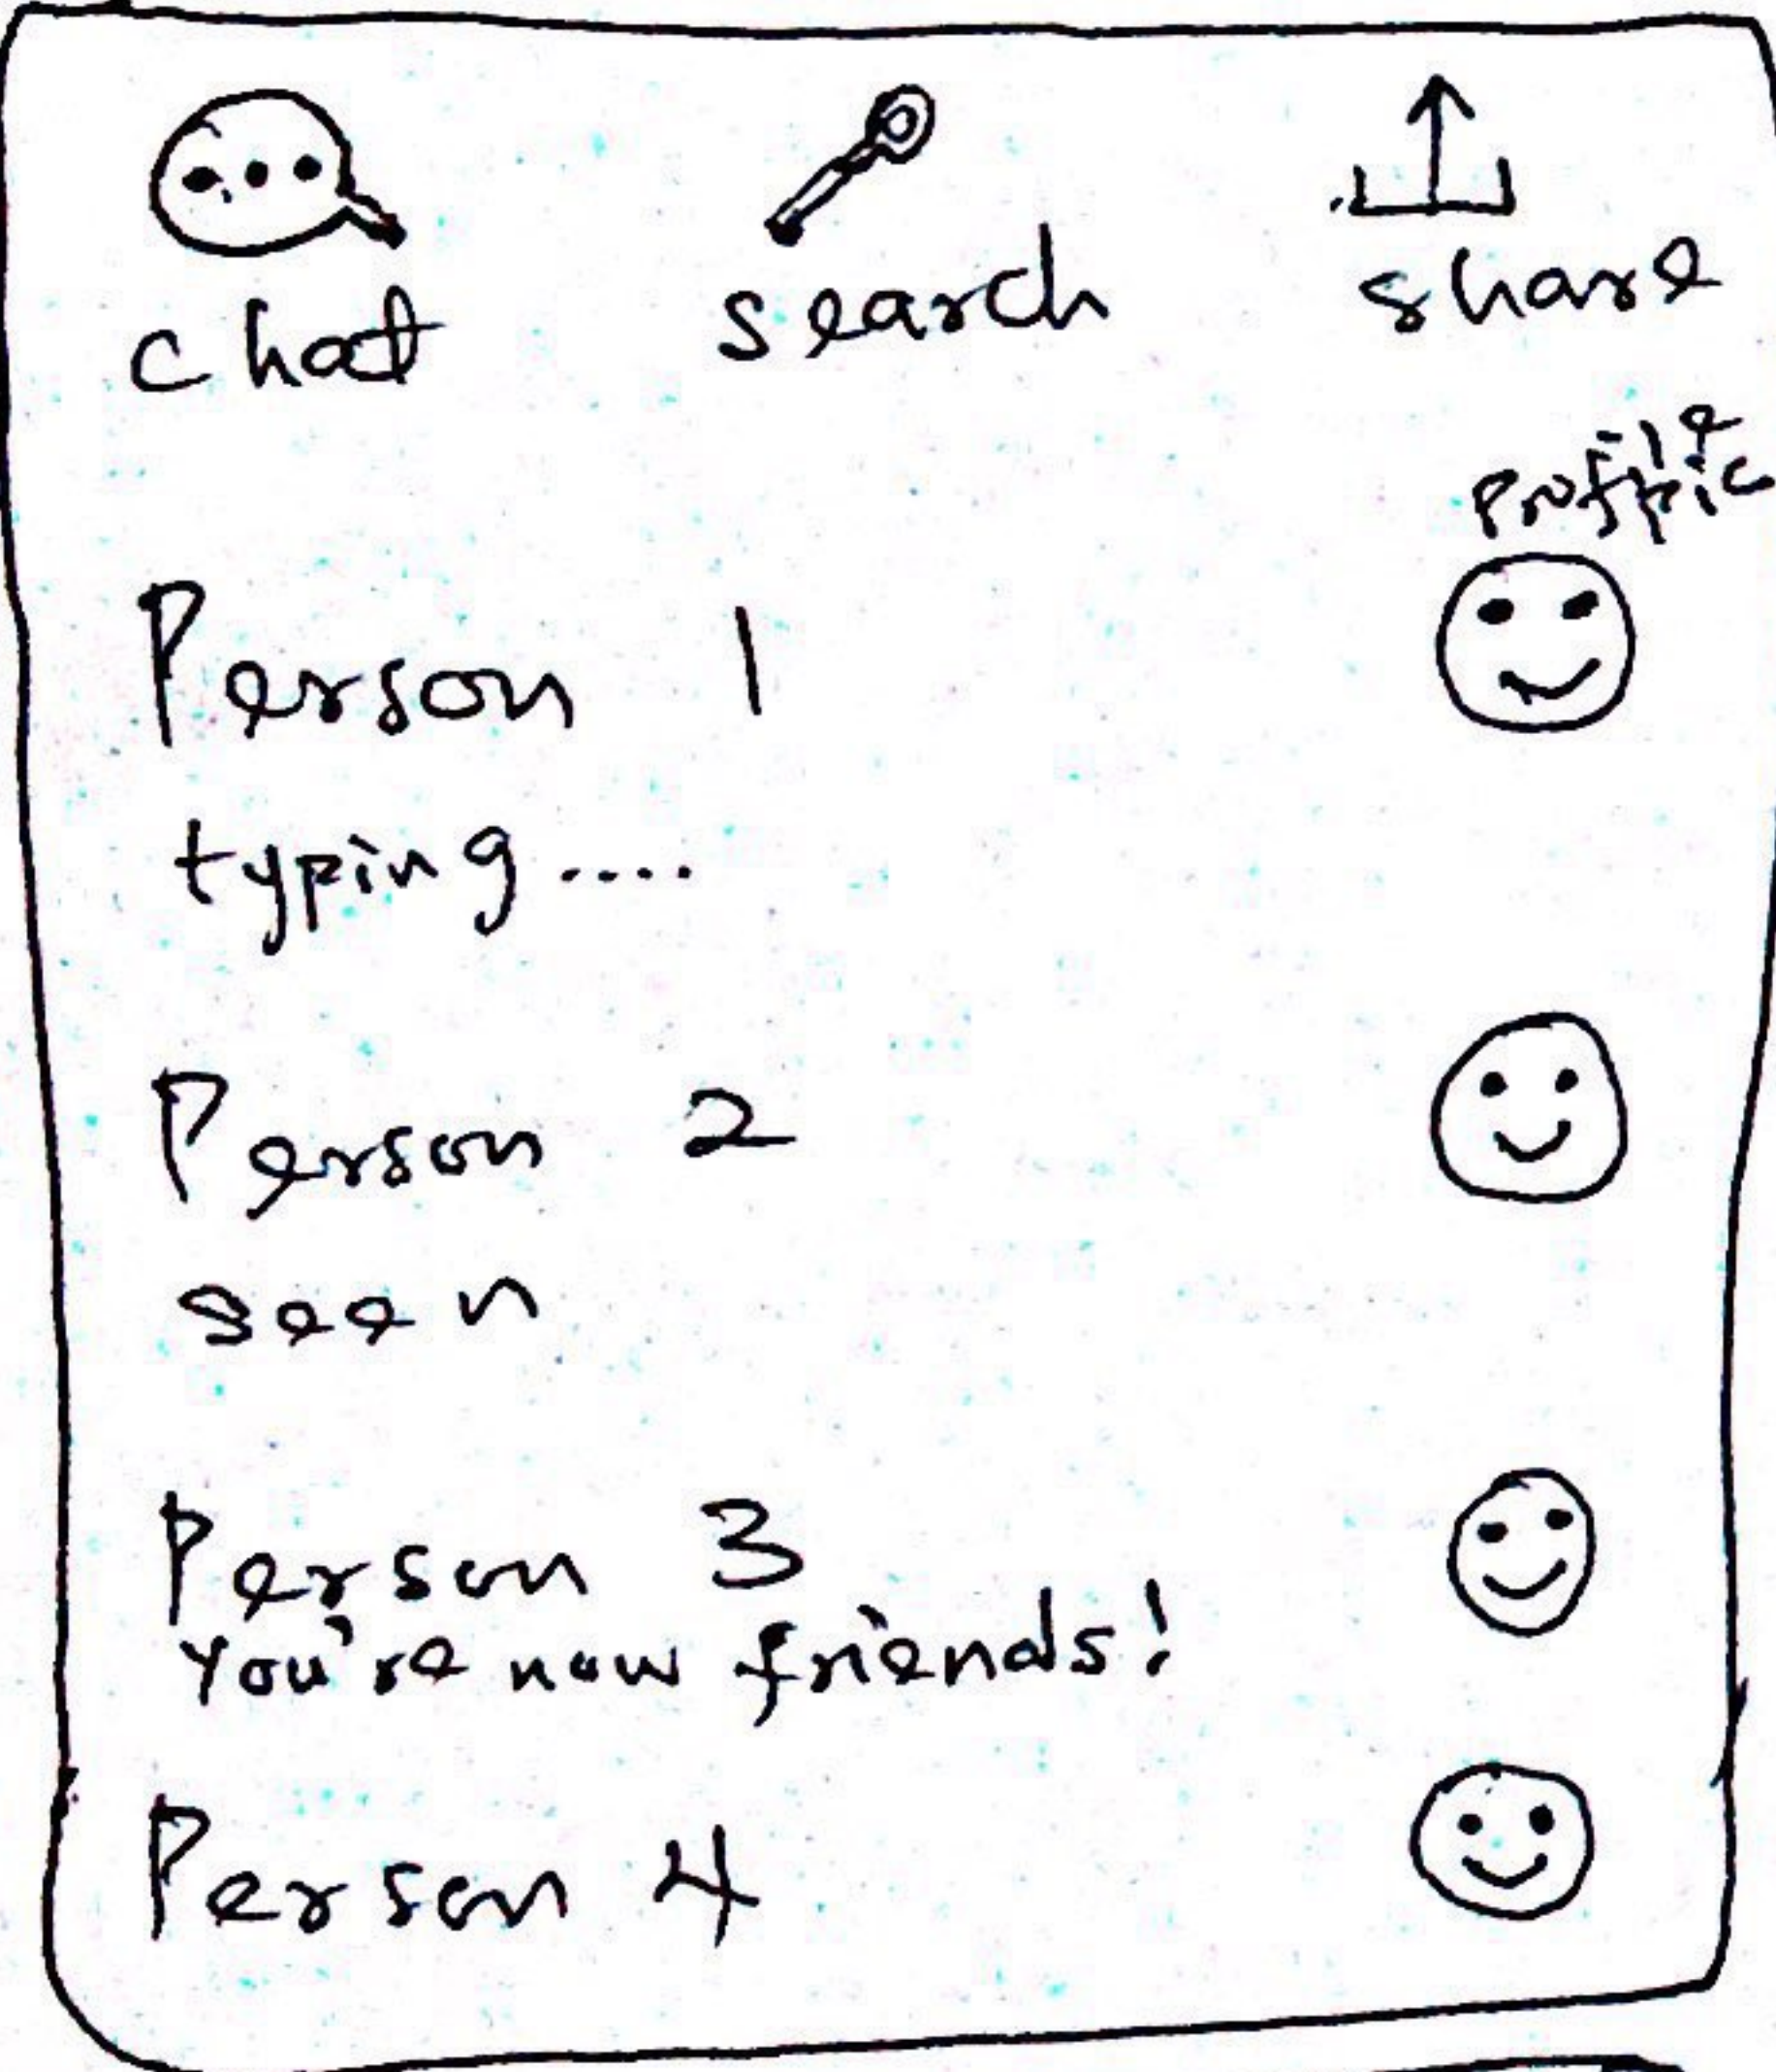 chat search share
profile
pic
Person 1
typing....
Person 2
seen
Person 3
you're now friends!
Person 4